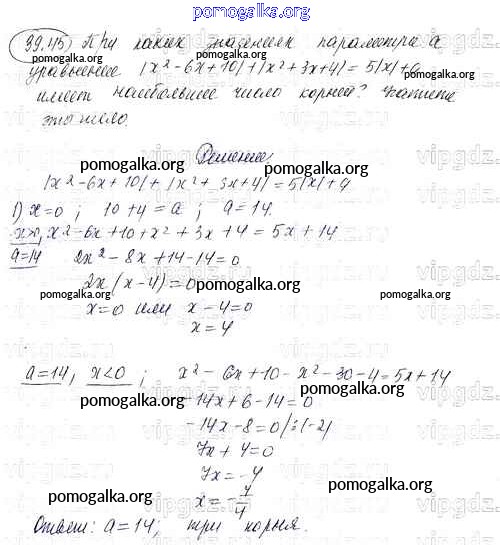 pomogalka.org
39.45) При каких значениях параметра a
уравнение |x² - 6x + 10| + |x² + 3x + 4| = 5|x| + a
имеет наибольшее число корней? Укажите
это число.
Решение:
pomogalka.org pomogalka.org
|x² - 6x + 10| + |x² + 3x + 4| = 5|x| + a
1) x = 0 ; 10 + 4 = a ; a = 14.
x>0, x² - 6x + 10 + x² + 3x + 4 = 5x + 14
a = 14 2x² - 8x + 14 - 14 = 0
2x (x - 4) = 0
pomogalka.org pomogalka.org pomogalka.org
x = 0 или x - 4 = 0
x = 4
a = 14, x < 0 ; x² - 6x + 10 - x² - 30 - 4 = 5x + 14
pomogalka.org pomogalka.org
- 14x + 6 - 14 = 0
- 14x - 8 = 0 /:(-2)
7x + 4 = 0
7x = -4
pomogalka.org pomogalka.org
x = - 7/4
Ответ: a = 14; три корня.
pomogalka.org
vipgdz.org